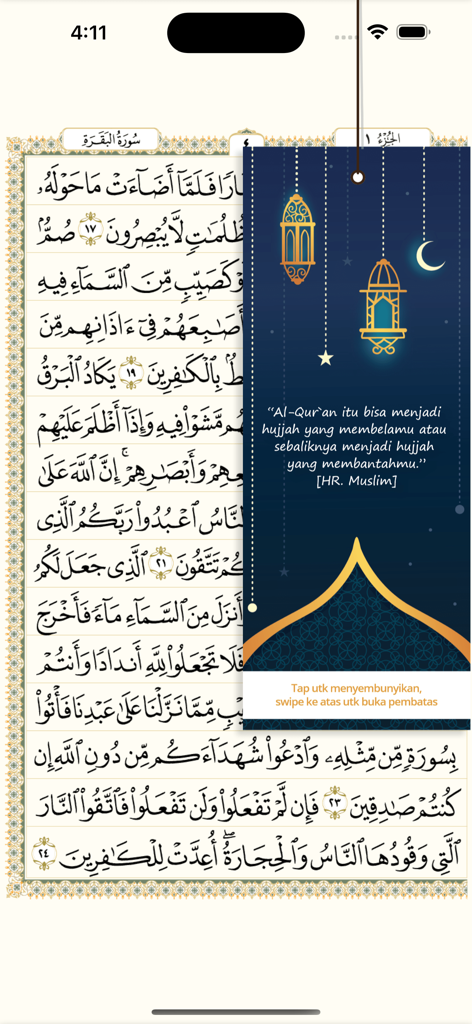 4:11
سُورَةُ البَقَرَةِ ٤ الجُزْءُ ١
فَلَمَّآ أَضَآءَتْ مَا حَوْلَهُۥ
ظُلُمَٰتٍ لَّا يُبْصِرُونَ ١٧ صُمُّۢ
كَصَيِّبٍ مِّنَ ٱلسَّمَآءِ فِيهِ
أَصَٰبِعَهُمْ فِىٓ ءَاذَانِهِم مِّنَ
بِٱلْكَٰفِرِينَ ١٩ يَكَادُ ٱلْبَرْقُ
مَّشَوْا۟ فِيهِ وَإِذَآ أَظْلَمَ عَلَيْهِمْ
وَأَبْصَٰرِهِمْ ۚ إِنَّ ٱللَّهَ عَلَىٰ
ٱلنَّاسُ ٱعْبُدُوا۟ رَبَّكُمُ ٱلَّذِى
تَتَّقُونَ ٢١ ٱلَّذِى جَعَلَ لَكُمُ
أَنزَلَ مِنَ ٱلسَّمَآءِ مَآءً فَأَخْرَجَ
فَلَا تَجْعَلُوا۟ لِلَّهِ أَندَادًا وَأَنتُمْ
مِّمَّا نَزَّلْنَا عَلَىٰ عَبْدِنَا فَأْتُوا۟
بِسُورَةٍ مِّن مِّثْلِهِۦ وَٱدْعُوا۟ شُهَدَآءَكُم مِّن دُونِ ٱللَّهِ إِن
كُنتُمْ صَٰدِقِينَ ٢٣ فَإِن لَّمْ تَفْعَلُوا۟ وَلَن تَفْعَلُوا۟ فَٱتَّقُوا۟ ٱلنَّارَ
ٱلَّتِى وَقُودُهَا ٱلنَّاسُ وَٱلْحِجَارَةُ ۖ أُعِدَّتْ لِلْكَٰفِرِينَ ٢٤
“Al-Qur`an itu bisa menjadi
hujjah yang membelamu atau
sebaliknya menjadi hujjah
yang membantahmu.”
[HR. Muslim]
Tap utk menyembunyikan,
swipe ke atas utk buka pembatas